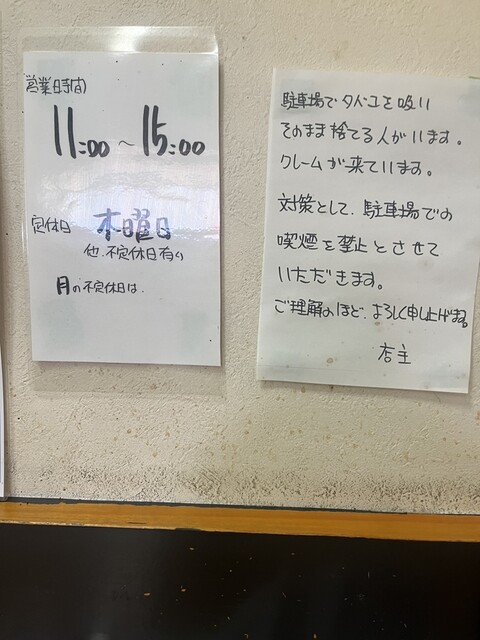 営業時間
11:00 ～ 15:00
定休日 木曜日
他、不定休日有り
月の不定休日は、
駐車場でタバコを吸い
そのまま捨てる人がいます。
クレームが来ています。
対策として、駐車場での
喫煙を禁止とさせて
いただきます。
ご理解のほど、よろしく申し上げます。
店主